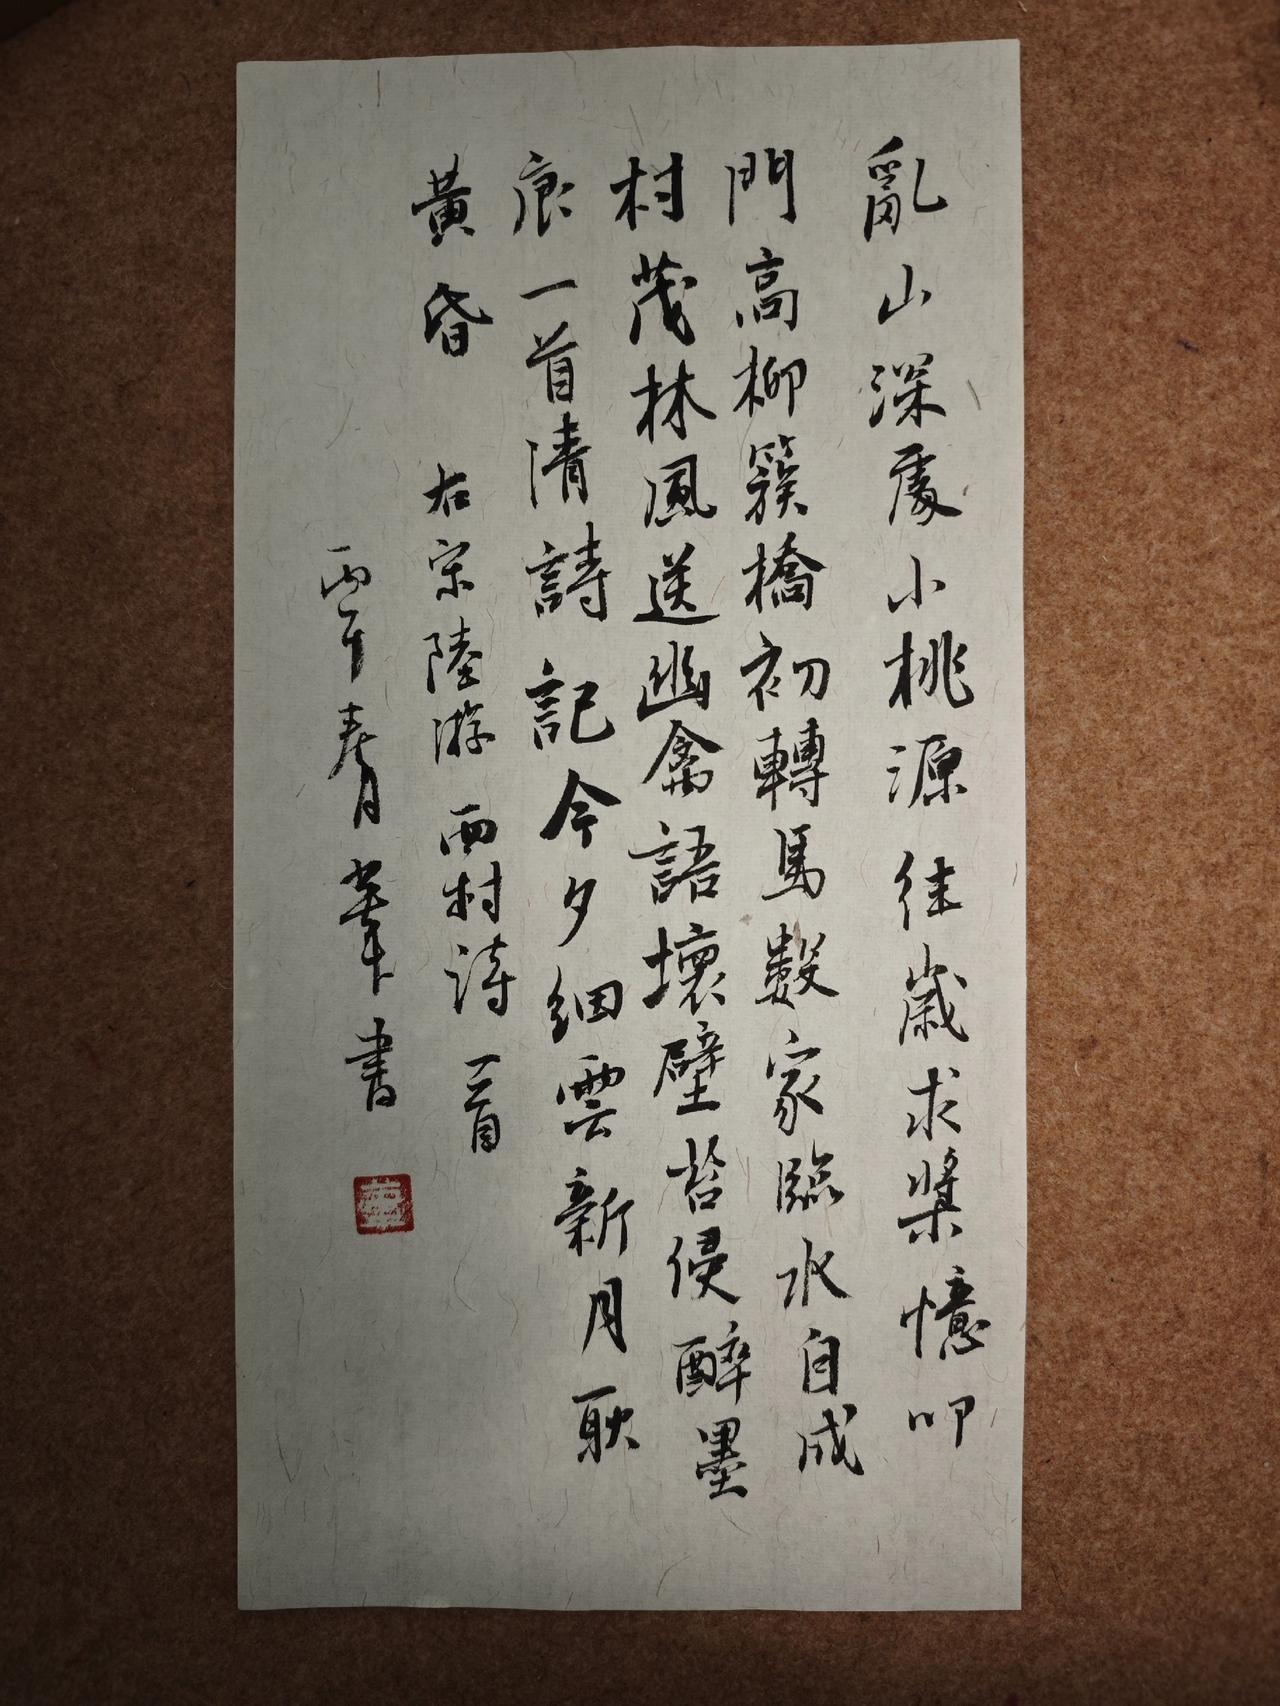 亂山深處小桃源往歲求漿憶叩
門高柳簇橋初轉馬數家臨水自成
村茂林風送幽禽語壞壁苔侵醉墨
痕一首清詩記今夕細雲新月耿
黃昏
右宋陸游西村詩一首
丙午春月 書